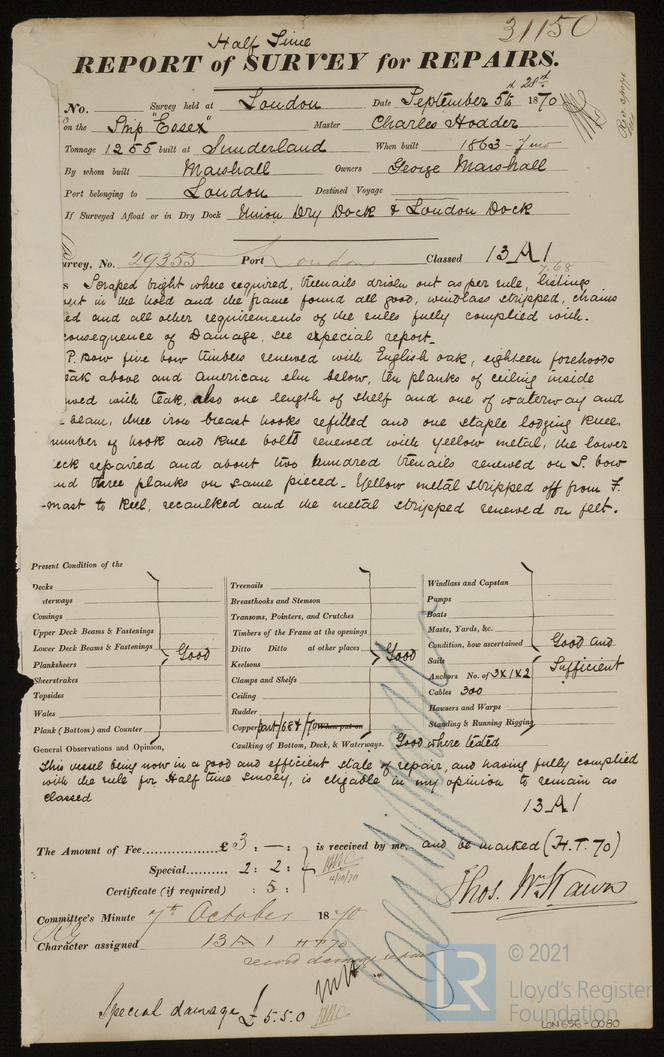 31150
Half Time
REPORT of SURVEY for REPAIRS.
No. Survey held at London Date September 5th 28th 1870
on the Ship "Essex" Master Charles Hodder
Tonnage 1255 built at Sunderland When built 1863 - 7 mo
By whom built Marshall Owners George Marshall
Port belonging to London Destined Voyage
If Surveyed Afloat or in Dry Dock Union Dry Dock & London Dock
urvey, No. 29355 Port London Classed 13 A 1
7.68
s Scraped bright where required, treenails driven out as per rule, listings
out in the hold and the frame found all good, windlass stripped, chains
ed and all other requirements of the rules fully complied with.
consequence of Damage, see especial report.
P. bow five bow timbers renewed with English oak, eighteen forehoods
eak above and American elm below, ten planks of ceiling inside
wed with teak, also one length of shelf and one of waterway and
beam, three iron breast hooks refitted and one staple lodging knee.
number of hook and knee bolts renewed with yellow metal, the lower
eck repaired and about two hundred trenails renewed on S. bow
nd three planks on same pieced. Yellow metal stripped off from F.
mast to keel, recaulked and the metal stripped renewed on felt.
Present Condition of the
Decks
terways
Comings
Upper Deck Beams & Fastenings
Lower Deck Beams & Fastenings Good
Planksheers
Sheerstrakes
Topsides
Wales
Plank (Bottom) and Counter
Treenails
Breasthooks and Stemson
Transoms, Pointers, and Crutches
Timbers of the Frame at the openings
Ditto Ditto at other places Good
Keelsons
Clamps and Shelfs
Ceiling
Rudder
Copper part/68 & /70 When put on
Caulking of Bottom, Deck, & Waterways. Good where tested
Windlass and Capstan
Pumps
Boats
Masts, Yards, &c.
Condition, how ascertained Good and
Sails Sufficient
Anchors No. of 3 X 1 X 2
Cables 300
Hawsers and Warps
Standing & Running Rigging
General Observations and Opinion,
This vessel being now in a good and efficient state of repair, and having fully complied
with the rule for Half time survey, is eligable in my opinion to remain as
classed
13 A 1
The Amount of Fee £ 3 : — : is received by me, and be marked (H.T. 70)
Special 2 : 2 :
Certificate (if required) : 5 :
4/10/70
Thos. Wm Wawn
Committee's Minute 7th October 1870
Character assigned 13 A 1 HT 70
record damage repair
Special damage £5.5.0
LR © 2021
Lloyd's Register
Foundation
LON656-0080